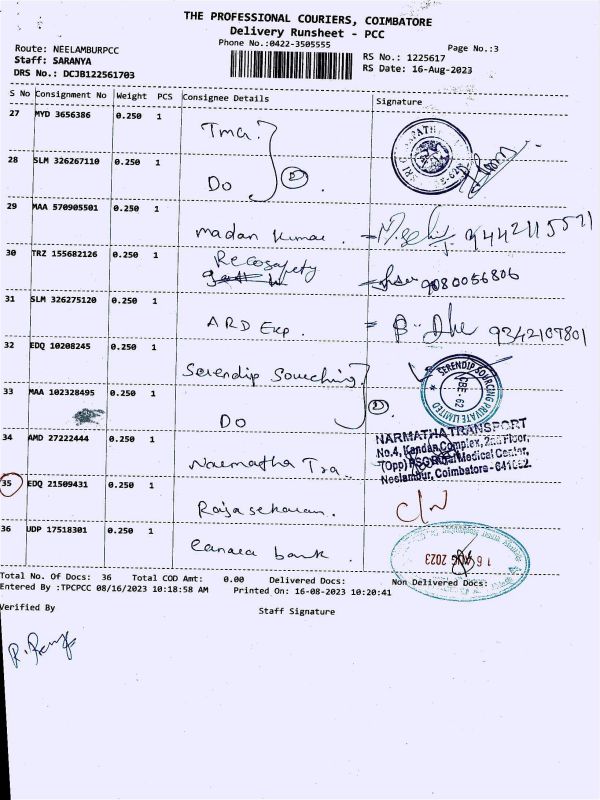 THE PROFESSIONAL COURIERS, COIMBATORE
Delivery Runsheet - PCC
Phone No.:0422-3505555
Page No.:3
Route: NEELAMBURPCC
Staff: SARANYA
DRS No.: DCJB122561703
RS No.: 1225617
RS Date: 16-Aug-2023
S No Consignment No Weight PCS Consignee Details Signature
27 MYD 3656386 0.250 1 Tma.
28 SLM 326267110 0.250 1 Do 2
29 MAA 570905501 0.250 1 madan kumar. 9442115521
30 TRZ 155682126 0.250 1 Recosafety 9080056806
31 SLM 326275120 0.250 1 ARD Exp. 9342107801
32 EDQ 10208245 0.250 1 Serendip Sourching
SERENDIP SOURCING PRIVATE LIMITED
CBE - 62
33 MAA 102328495 0.250 1 Do 2
34 AMD 27222444 0.250 1 Narmatha Tra.
NARMATHA TRANSPORT
No.4, Kandan Complex, 2nd Floor,
(Opp) PSG Medical Center,
Neelambur, Coimbatore - 641062.
35 EDQ 21509431 0.250 1 Rajasekaran.
36 UDP 17518301 0.250 1 Canara bank.
16 AUG 2023
Total No. Of Docs: 36 Total COD Amt: 0.00 Delivered Docs: Non Delivered Docs:
Entered By :TPCPCC 08/16/2023 10:18:58 AM Printed On: 16-08-2023 10:20:41
Verified By Staff Signature